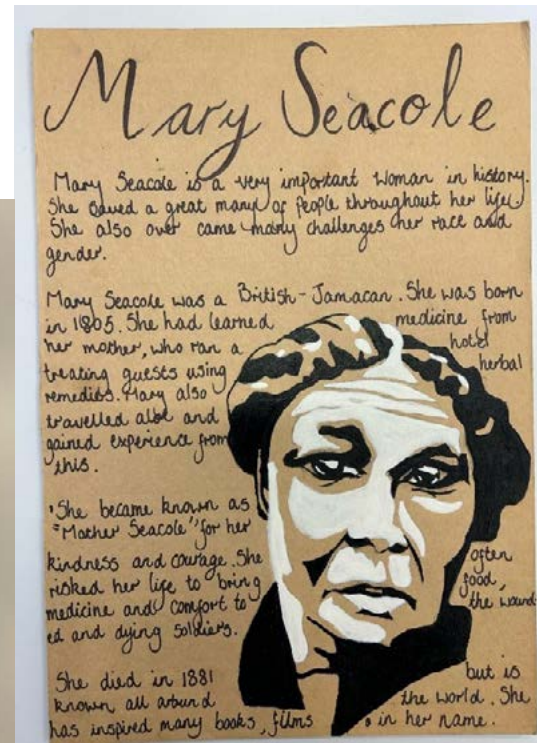 Mary Seacole
Mary Seacole is a very important woman in history.
She saved a great many of people throughout her life.
She also over came many challenges her race and
gender.
Mary Seacole was a British-Jamacan. She was born
in 1805. She had learned medicine from
her mother, who ran a hotel
treating guests using herbal
remedies. Mary also
travelled alot and
gained experience from
this.
She became known as
"Mother Seacole" for her
kindness and courage. She often
risked her life to bring food,
medicine and comfort to the wound
ed and dying soldiers.
She died in 1881 but is
known all around the world. She
has inspired many books, films in her name.